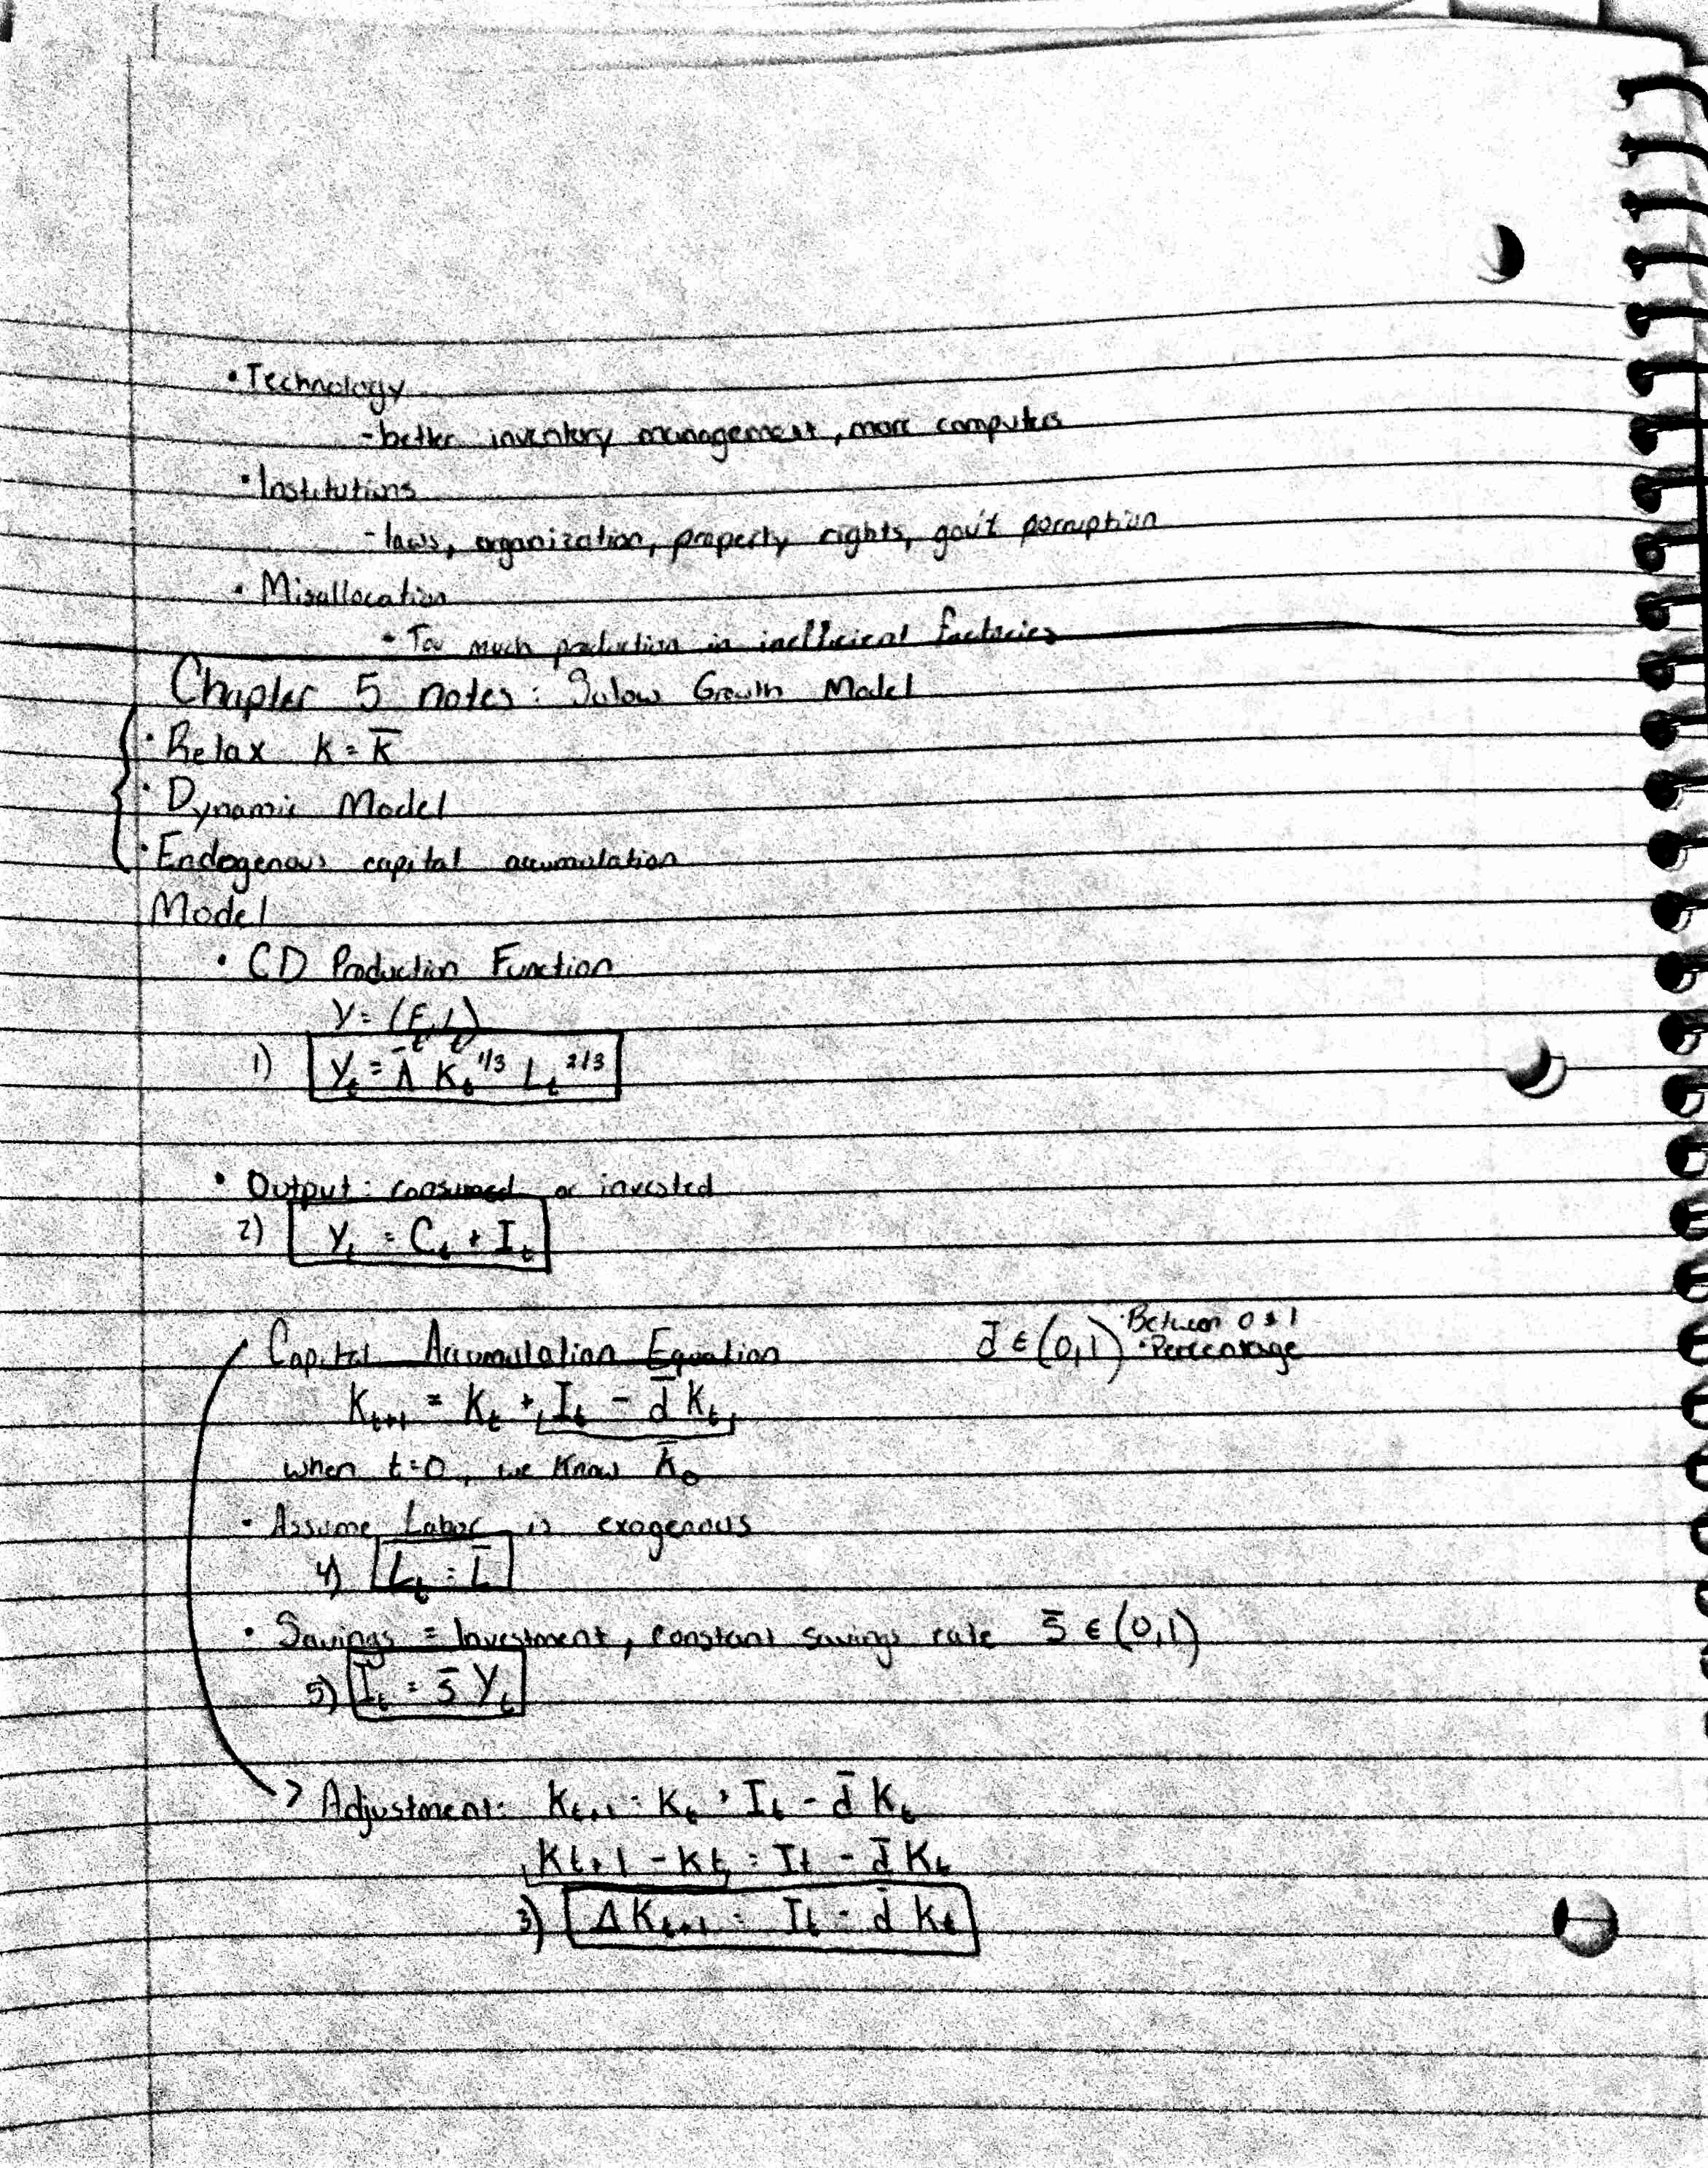 • Technology
- better inventory management, more computers
• Institutions
- laws, organization, property rights, gov't corruption
• Misallocation
• Too much production in inefficient factories
Chapter 5 notes: Solow Growth Model
• Relax K = K̄
• Dynamic Model
• Endogenous capital accumulation
Model
• CD Production Function
Y = (F, L)
1) Yₜ = Ā Kₜ^1/3 Lₜ^2/3
• Output: consumed or invested
2) Yₜ = Cₜ + Iₜ
Capital Accumulation Equation d̄ ∈ (0,1) • Between 0 & 1
• Percentage
Kₜ₊₁ = Kₜ + Iₜ - d̄ Kₜ
when t=0, we know K̄₀
• Assume Labor is exogenous
4) Lₜ = L̄
• Savings = Investment, constant savings rate s̄ ∈ (0,1)
5) Iₜ = s̄ Yₜ
> Adjustment: Kₜ₊₁ = Kₜ + Iₜ - d̄ Kₜ
Kₜ₊₁ - Kₜ = Iₜ - d̄ Kₜ
3) ΔKₜ₊₁ = Iₜ - d̄ Kₜ